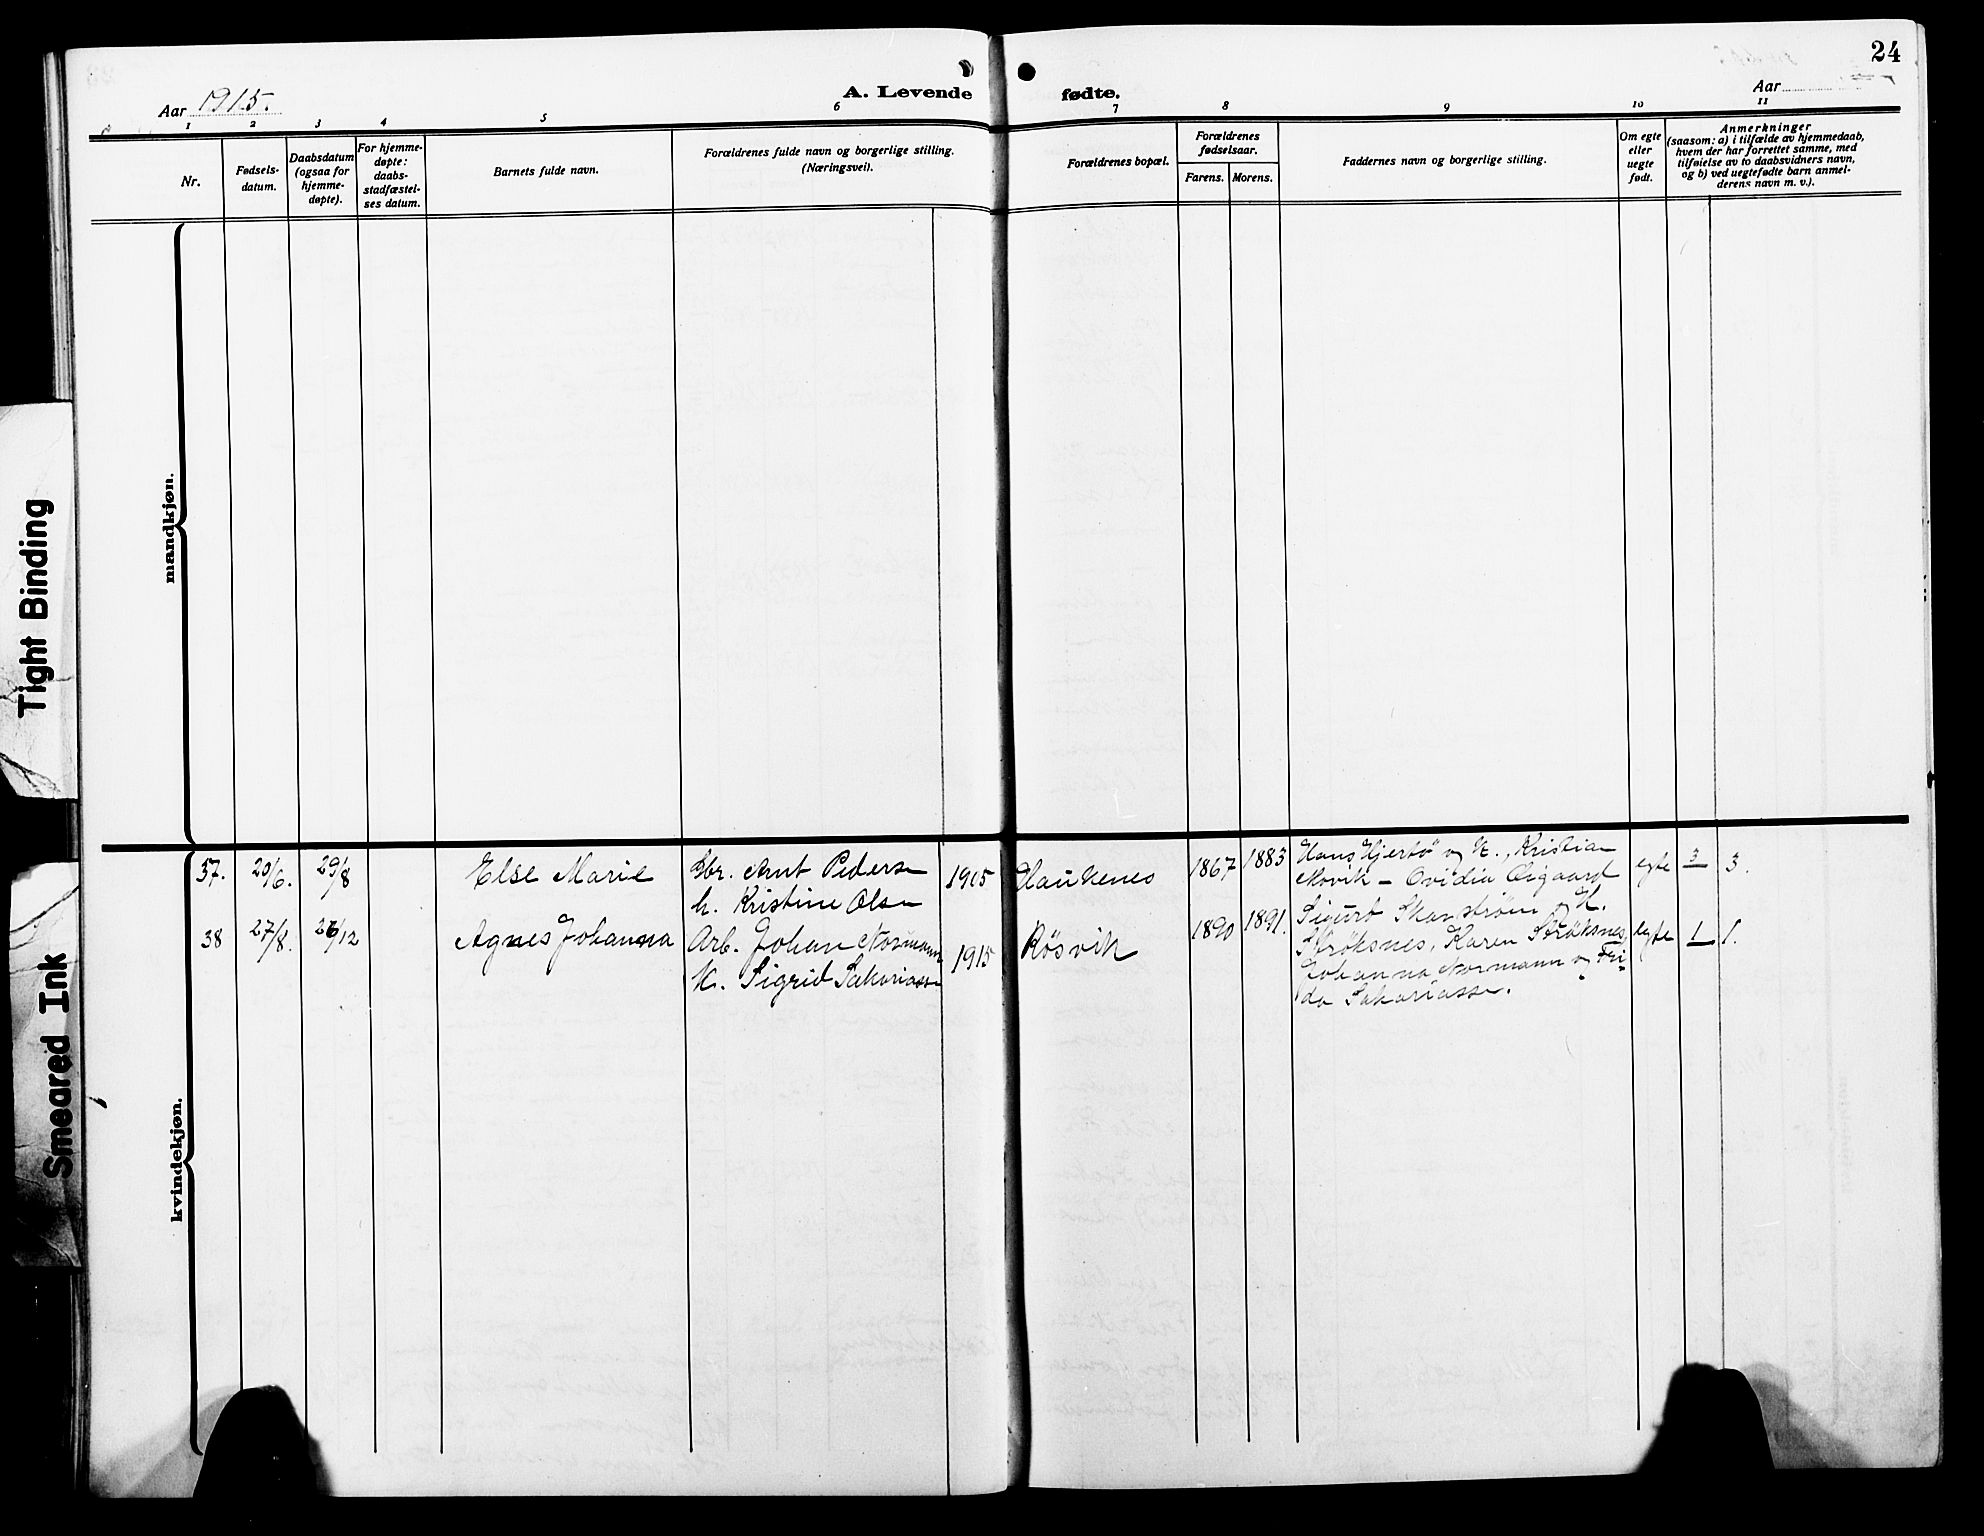 24
Aar 1915.
A. Levende fødte.
Aar
1 2 3 4 5 6 7 8 9 10 11
Nr.
Fødsels-
datum.
Daabsdatum
(ogsaa for
hjemme-
døpte).
For hjemme-
døpte:
daabs-
stadfæstel-
ses datum.
Barnets fulde navn.
Forældrenes fulde navn og borgerlige stilling.
(Næringsvei).
Forældrenes bopæl.
Forældrenes
fødselsaar.
Farens. Morens.
Faddernes navn og borgerlige stilling.
Om egte
eller
uegte
født.
Anmerkninger
(saasom: a) i tilfælde av hjemmedaab,
hvem der har forrettet samme, med
tilføielse av to daabsvidners navn,
og b) ved uegtefødte barn anmel-
derens navn m. v.).
mandkjøn.
kvindekjøn.
37. 20/6. 29/8 Else Marie
Gbr. Arnt Pedersen
h. Kristine Olsen
1905 Haukenes 1867 1883
Hans Hjertø og H., Kristian
Movik – Ovidia Osgaard
egte 3 3.
38 27/8. 26/12 Agnes Johanna
Arb. Johan Normann
h. Sigrid Sakariassen
1915 Røsvik 1890 1891.
Sigurd Skarstrøm og H.
Strøksnes, Karen Strøksnes,
Johanna Normann og Fri-
da Sakariassen.
egte 1 1.
Tight Binding
Smeared Ink